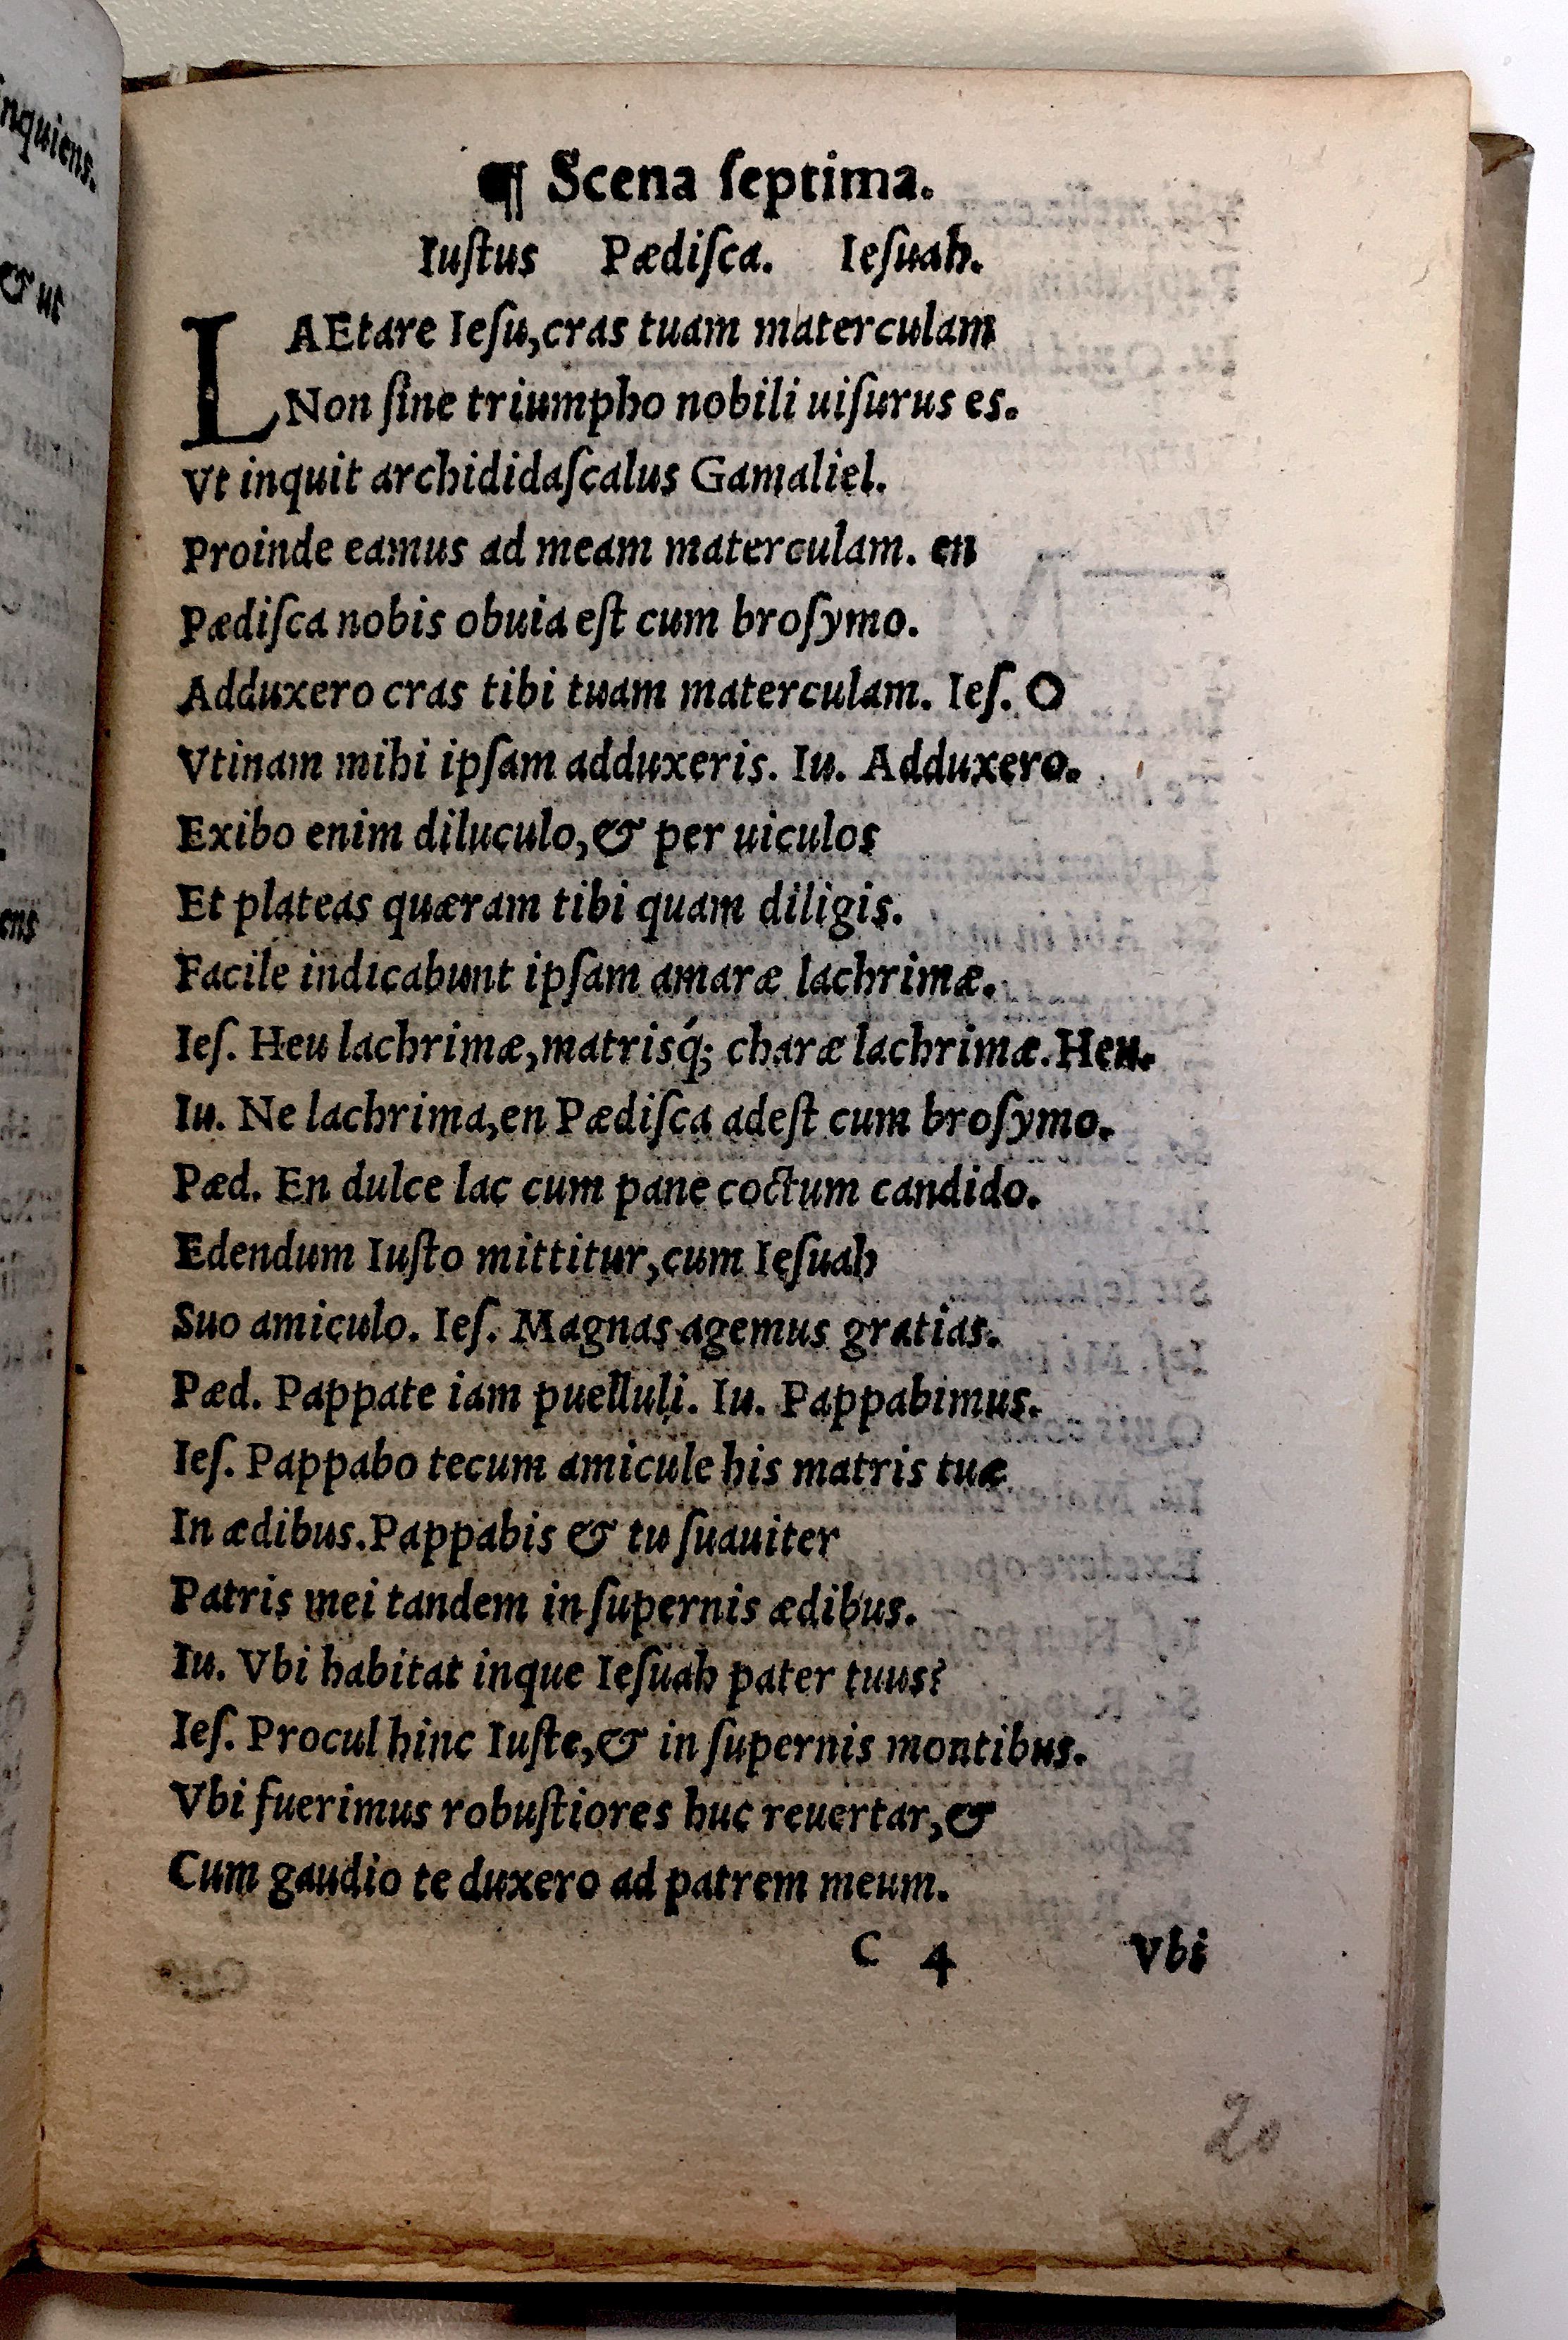 inquiens.
in &
ens
¶ Scena ſeptima.
Iuſtus Pædiſca. Ieſuah.
LAEtare Ieſu,cras tuam materculam
Non ſine triumpho nobili uiſurus es.
Vt inquit archididaſcalus Gamaliel.
Proinde eamus ad meam materculam. en
Pædiſca nobis obuia eſt cum broſymo.
Adduxero cras tibi tuam materculam. Ieſ. O
Vtinam mihi ipſam adduxeris. Iu. Adduxero.
Exibo enim diluculo,& per uiculos
Et plateas quæram tibi quam diligis.
Facile indicabunt ipſam amaræ lachrimæ.
Ieſ. Heu lachrimæ,matrisq́; charæ lachrimæ.Heu.
Iu. Ne lachrima,en Pædiſca adeſt cum broſymo.
Pæd. En dulce lac cum pane coctum candido.
Edendum Iuſto mittitur,cum Ieſuah
Suo amiculo. Ieſ. Magnas agemus gratias.
Pæd. Pappate iam puelluli. Iu. Pappabimus.
Ieſ. Pappabo tecum amicule his matris tuæ
In ædibus.Pappabis & tu ſuauiter
Patris mei tandem in ſupernis ædibus.
Iu. Vbi habitat inque Ieſuah pater tuus?
Ieſ. Procul hinc Iuſte,& in ſupernis montibus.
Vbi fuerimus robuſtiores huc reuertar,&
Cum gaudio te duxero ad patrem meum.
C 4 Vbi
20